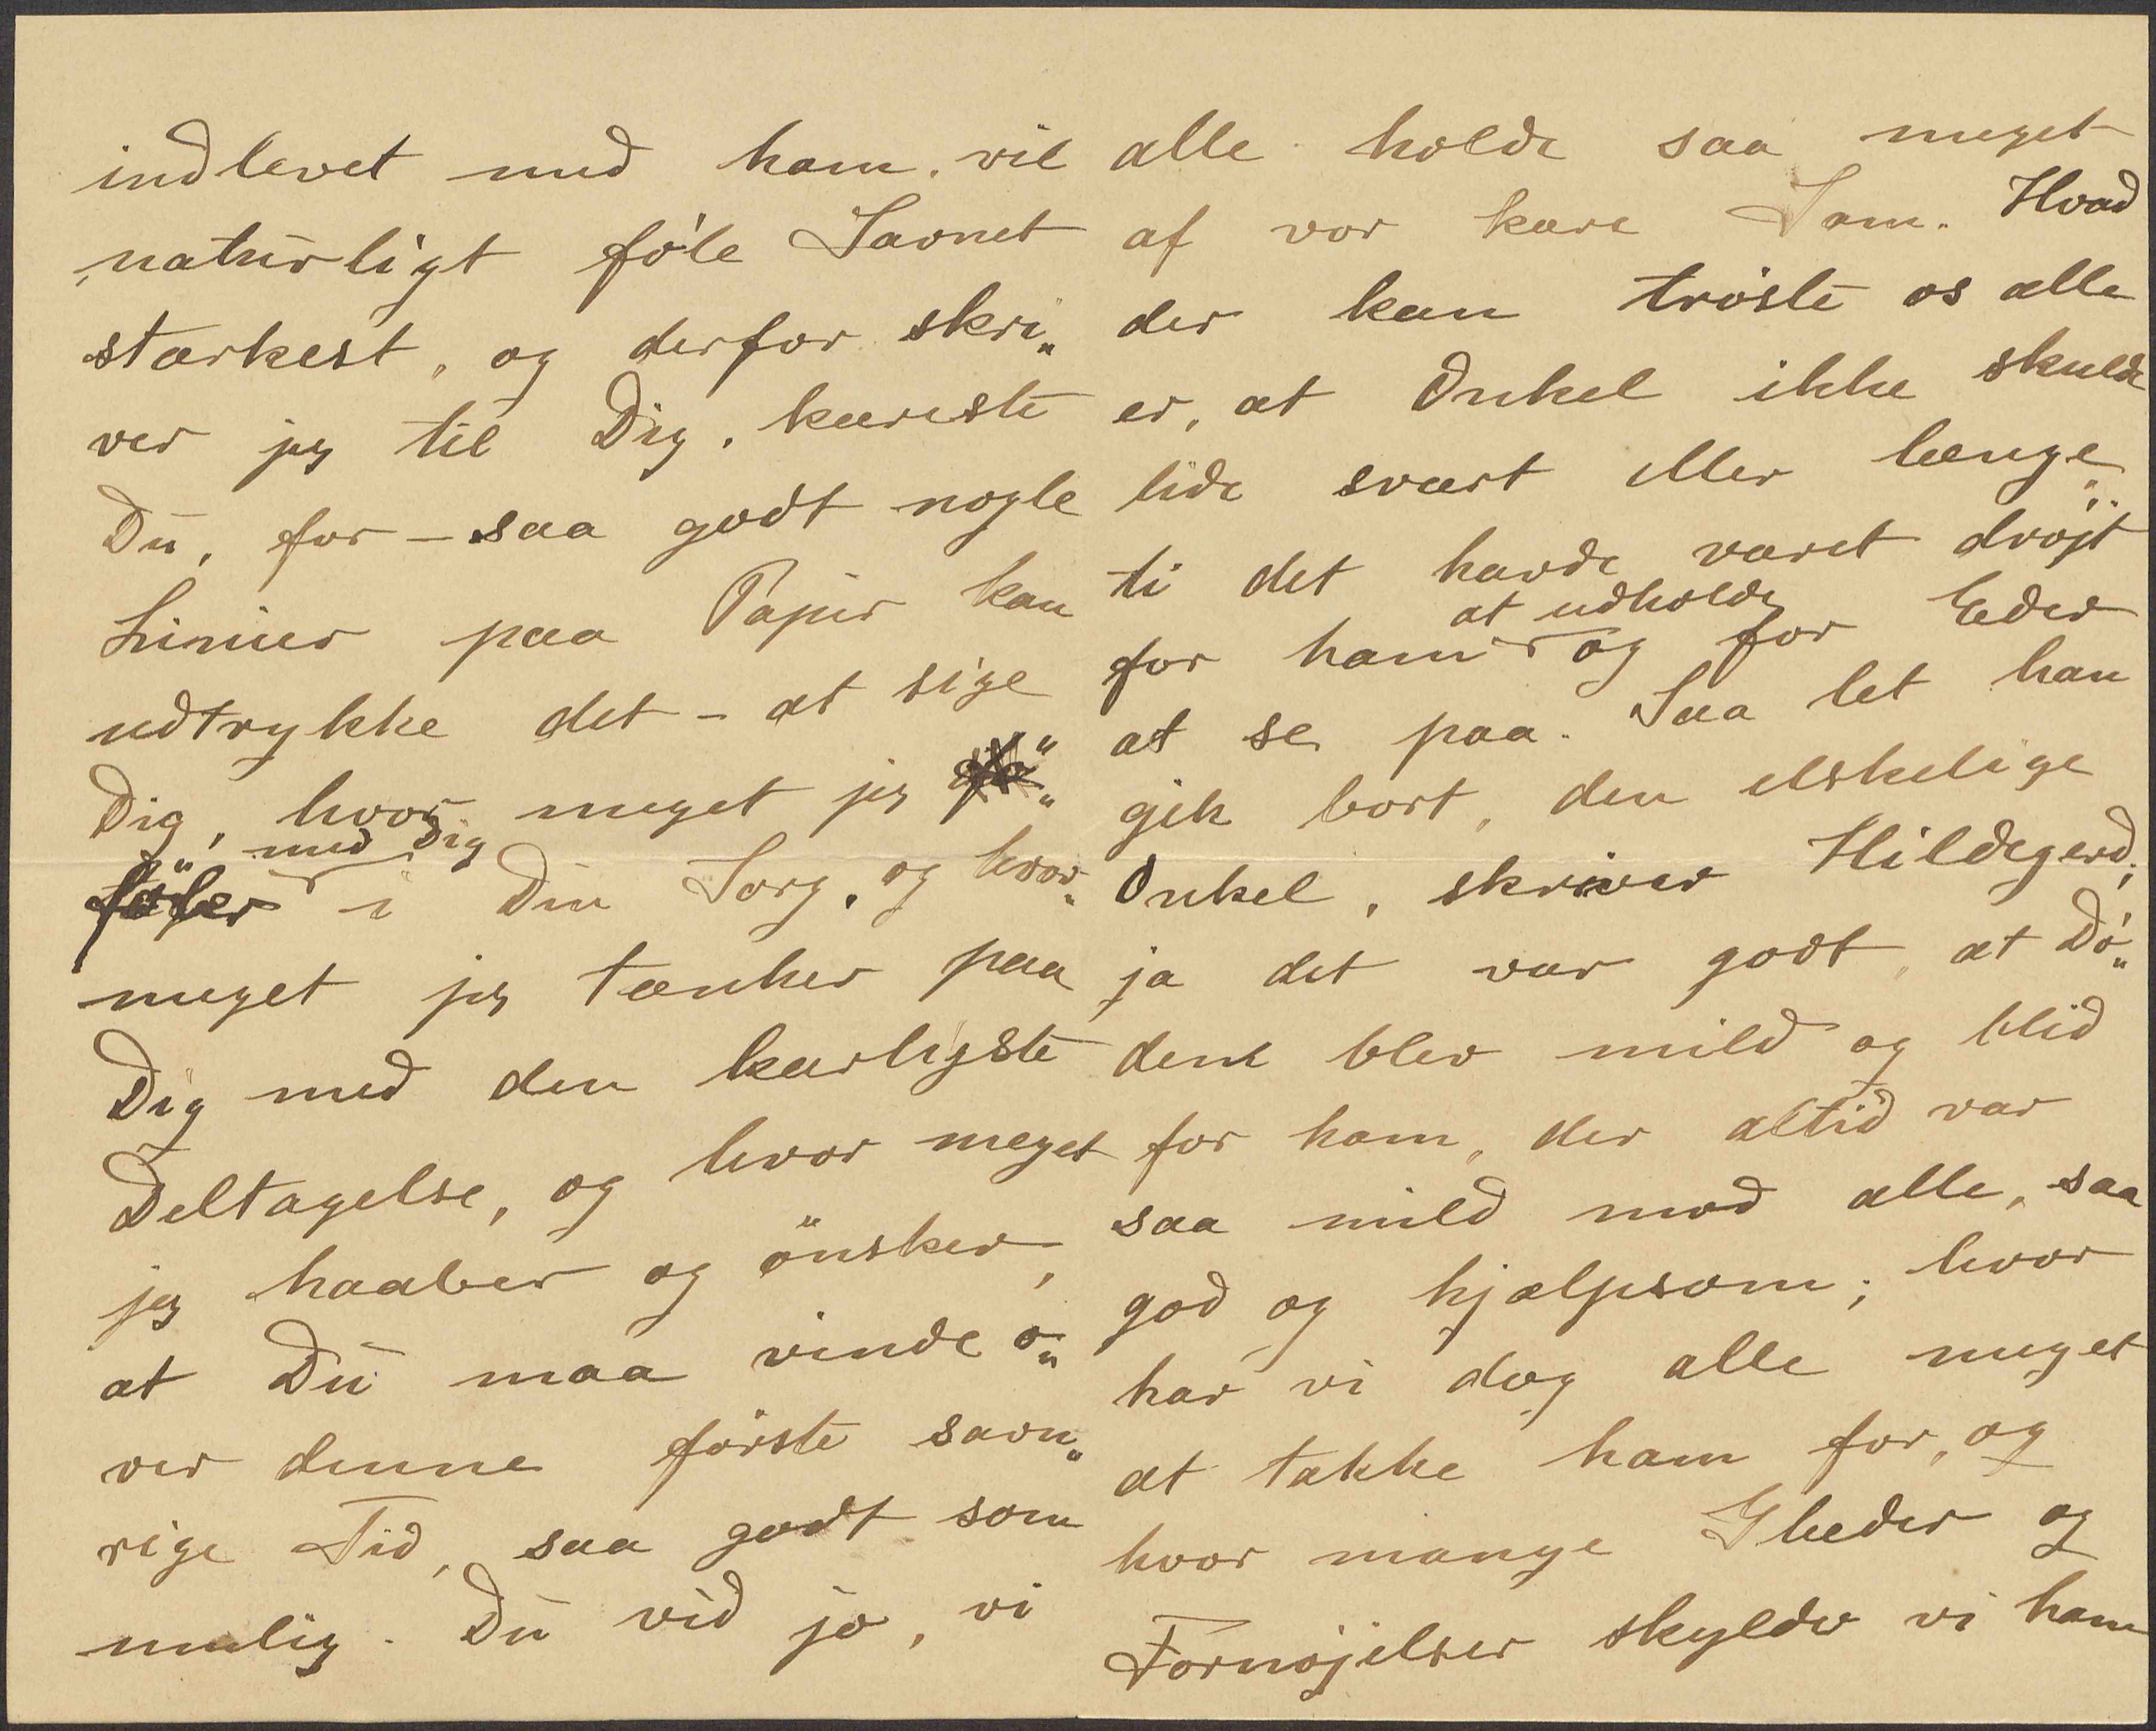 indlevet med ham, vil
naturligt føle Savnet
stærkest, og derfor skri„
ver jeg til Dig, kæreste
Du, for – saa godt nogle
Linier paa Papir kan
udtrykke det – at sige
Dig, hvor meget jeg
med Dig
föler i Din Sorg, og hvor„
meget jeg tænker paa
Dig med den kærligste
Deltagelse, og hvor meget
jeg haaber og önsker,
at Du maa vinde o„
ver denne förste savn„
rige Tid, saa godt som
mulig. Du vid jo, vi
alle holde saa meget
af vor kære Sam. Hvad
der kan tröste os alle
er, at Onkel ikke skulde
lide svært eller længe,
ti det havde været dröjt
at udholde
for ham og for Eder
at se paa. Saa let han
gik bort, den elskelige
Onkel, skriver Hildegerd;
ja det var godt, at Dö„
den blev mild og blid
for ham, der altid var
saa mild mod alle, saa
god og hjælpsom; hvor
har vi dog alle meget
at takke ham for, og
hvor mange Glæder og
Fornöjelser skylder vi ham